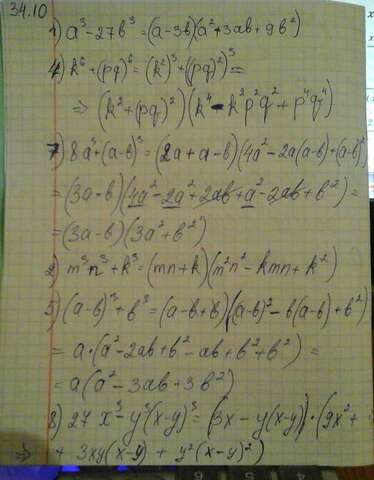 34.10
1) a³-27b³=(a-3b)(a²+3ab+9b²)
4) k⁶+(pq)⁶=(k²)³+((pq)²)³=
⇒ (k²+(pq)²)(k⁴-k²p²q²+p⁴q⁴)
7) 8a³+(a-b)³=(2a+a-b)(4a²-2a(a-b)+(a-b)²
=(3a-b)(4a²-2a²+2ab+a²-2ab+b²)=
=(3a-b)(3a²+b²)
2) m³n³+k³=(mn+k)(m²n²-kmn+k²)
5) (a-b)³+b³=(a-b+b)((a-b)²-b(a-b)+b²)
=a·(a²-2ab+b²-ab+b²+b²)=
=a(a²-3ab+3b²)
8) 27x³-y³(x-y)³=(3x-y(x-y))·(9x²+
⇒ +3xy(x-y)+y²(x-y)²)